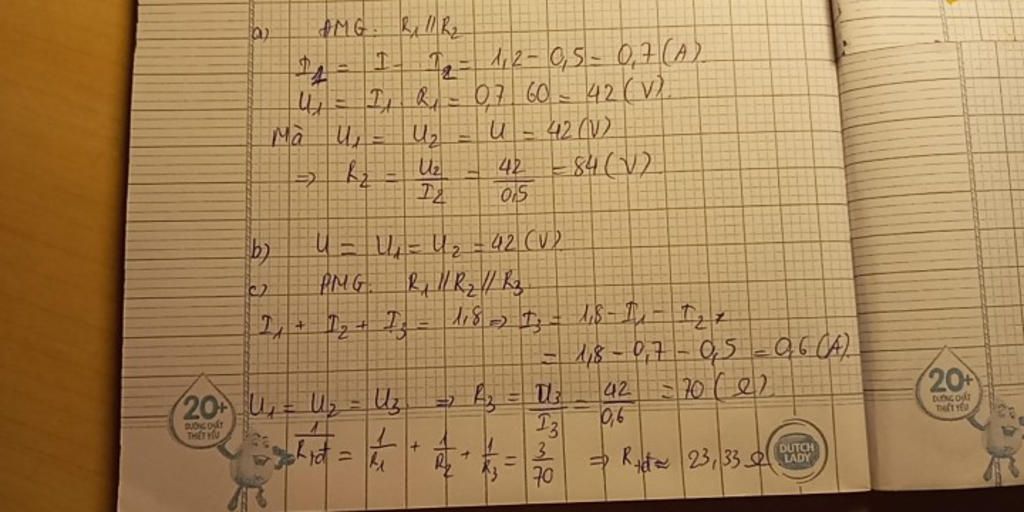 a) PMG: R₁//R₂
I₁ = I - I₂ = 1,2 - 0,5 = 0,7 (A)
U₁ = I₁ R₁ = 0,7 60 = 42 (V)
Mà U₁ = U₂ = U = 42 (V)
=> R₂ = U₂/I₂ = 42/0,5 = 84 (V)
b) U = U₁ = U₂ = 42 (V)
c) PMG: R₁//R₂//R₃
I₁ + I₂ + I₃ = 1,8 => I₃ = 1,8 - I₁ - I₂
= 1,8 - 0,7 - 0,5 = 0,6 (A)
U₁ = U₂ = U₃ => R₃ = U₃/I₃ = 42/0,6 = 70 (Ω)
1/Rtđ = 1/R₁ + 1/R₂ + 1/R₃ = 3/70 => Rtđ ≈ 23,33 Ω
20+
DƯỠNG CHẤT
THIẾT YẾU
DUTCH
LADY
20+
DƯỠNG CHẤT
THIẾT YẾU